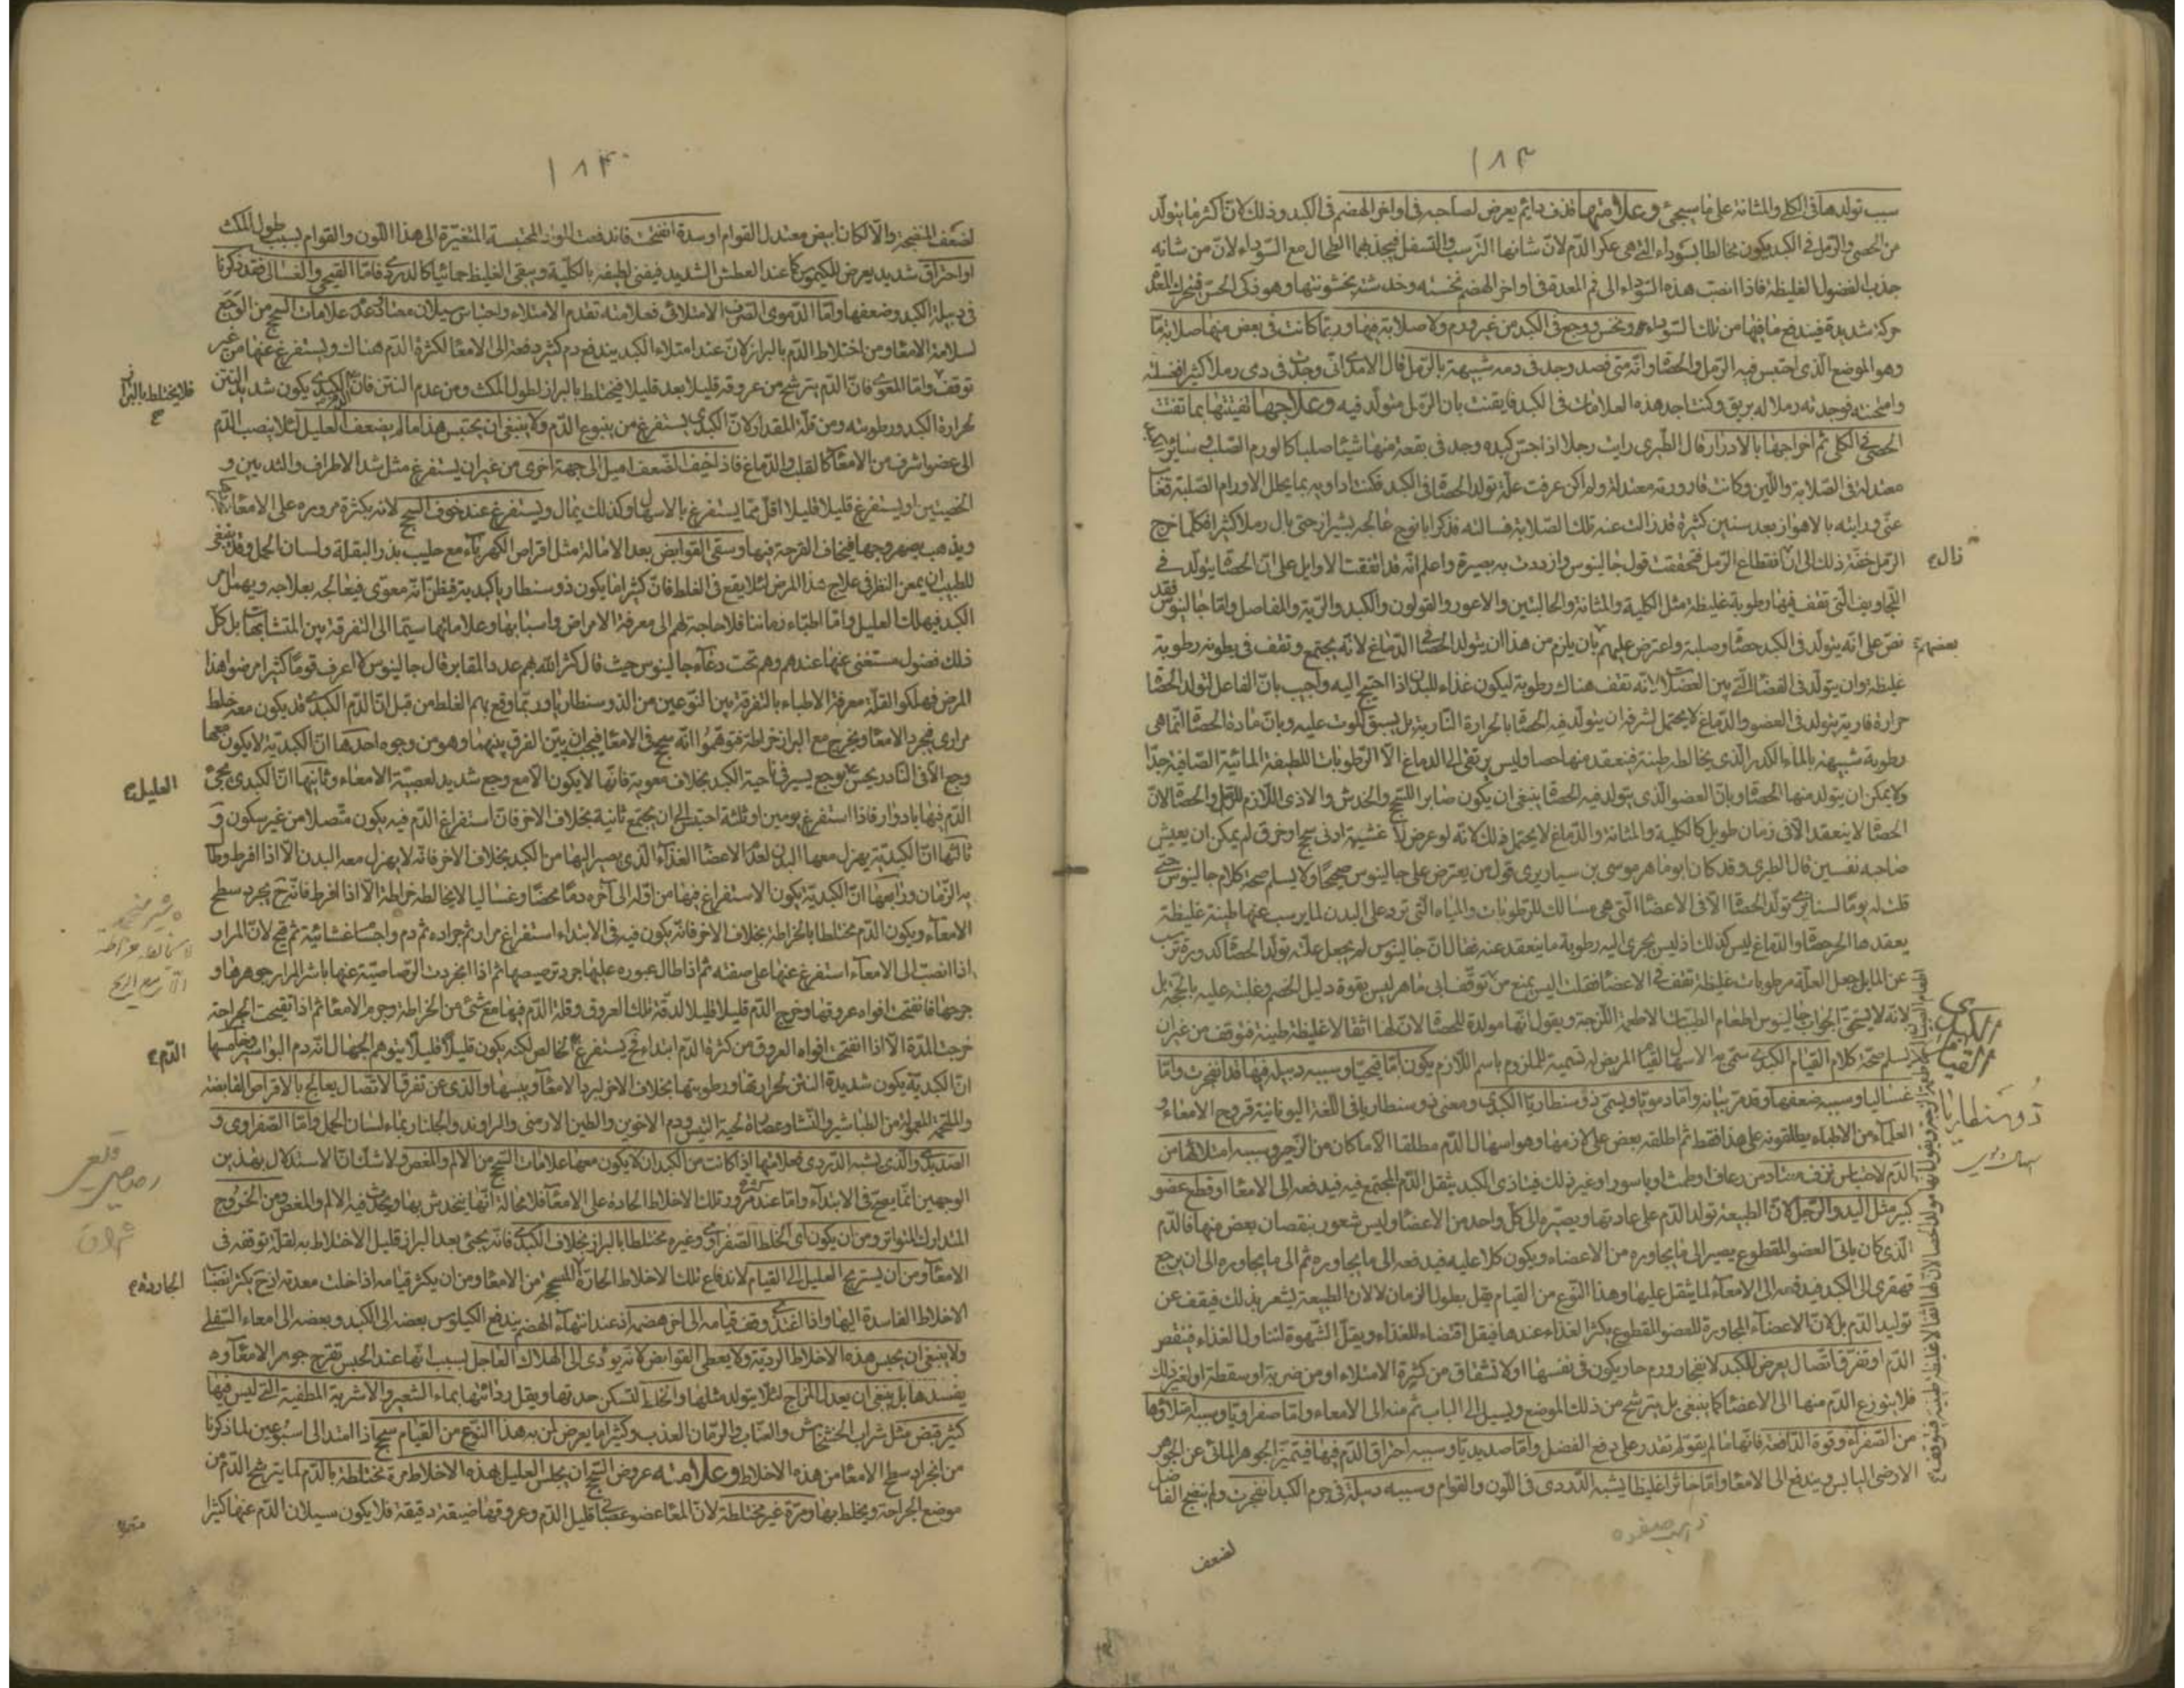 ١٨٣
سبب تولدها فى الكلى والمثانة على ما سيجئ وعلامتها قذف دايم يعرض لصاحبه فى اواخر الهضم فى الكبد وذلك لان اكثر ما يتولد
من الحصى والرمل فى الكبد يكون مخالطا بسوداء التى هى عكر الدم لان شانها الترسب والتسفل فيجذبهما الطحال مع السوداء لان من شانه
جذب الفضول الغليظة فاذا انصبت هذه السوداء الى فم المعدة فى اواخر الهضم نخسته وخدشته بخشونتها وهو ذكى الحس فيتحرك المعدة
حركة شديدة فيندفع ما فيها من تلك السوداء ونخس ووجع فى الكبد من غير ورم ولا صلابة فيها وربما كانت فى بعض منها صلابة ما
وهو الموضع الذى احتبس فيه الرمل والحصاة وانه متى فصد وجد فى دمه شبيهة بالرمل قال الامدى انى وجدت فى دمى رملا كثيرا فغسلته
وامتحنته فوجدته رملا له بريق وكنت اجد هذه العلامات فى الكبد فايقنت بان الرمل متولد فيه وعلاجها تفتيتها بما تفتت
الحصى فى الكلى ثم اخراجها بالادرار قال الطبرى رايت رجلا اذا جس كبده وجد فى بقعة منها شيئا صلبا كالورم الصلب وسائرها
معتدلة فى الصلابة واللين وكانت قارورته معتدلة ولم اكن عرفت علة تولد الحصاة فى الكبد فكنت اداويه بما يحلل الاورام الصلبة فغاب
عنى ورايته بالاهواز بعد سنين كثيرة قد زالت عنه تلك الصلابة فسالته فذكر ابا نوح عالجه بشيراز حتى بال رملا كثيرا فكلما خرج
الرمل خف ذلك الى ان انقطاع الرمل فتحققت قول جالينوس وازددت به بصيرة واعلم انه قد اتفقت الاوايل على ان الحصاة يتولد فى
زال
التجاويف التى تقف فيها رطوبة غليظة مثل الكلية والمثانة والحالبين والاعور والقولون والكبد والرية والمفاصل واما جالينوس فقد
نص على انه يتولد فى الكبد حصاة وصلبة واعترض عليهم بان يلزم من هذا ان يتولد الحصاة فى الدماغ لانه يجتمع وتقف فى بطونه رطوبة
بعضهم
غليظة وان يتولد فى الفضاء التى بين العضل لانه تقف هناك رطوبة ليكون غذاء للبدن اذا احتيج اليه واجيب بان الفاعل لتولد الحصاة
حرارة نارية يتولد فى العضو والدماغ لا يحتمل لشرفه ان يتولد فيه الحصاة بالحرارة النارية بل يسبق الموت عليه وبان مادة الحصاة انما هى
رطوبة شبيهة بالماء الكدر الذى يخالطه طينة فتنعقد منها حصاة وليس يرتقى الى الدماغ الا الرطوبات اللطيفة المائية الصافية جدا
ولا يمكن ان يتولد منها الحصاة وبان العضو الذى يتولد فيه الحصاة ينبغى ان يكون صابرا للسحج والخدش والاذى اللازم للرمل والحصاة لان
الحصاة لا ينعقد الا فى زمان طويل كالكلية والمثانة والدماغ لا يحتمل ذلك لانه لو عرض لاغشيته ادنى سحج او خرق لم يمكن ان يعيش
صاحبه نفسين قال الطبرى وقد كان ابو ماهر موسى بن سيار يرى قول من يعترض على جالينوس صحيحا ولا يسلم صحة كلام جالينوس حتى
قلت له يوما لسنا نرى تولد الحصاة الا فى الاعضاء التى هى مسالك للرطوبات والمياه التى ترد على البدن لما يرسب عنها طينة غليظة
يعقدها الحر حصاة والدماغ ليس كذلك اذ ليس يجرى اليه رطوبة ما ينعقد عنه فقال ان جالينوس لم يجعل علة تولد الحصاة كدورة ترسب
عن الماء بل جعل العلة رطوبات غليظة تقف فى الاعضاء فقلت ليس يمنع من توقف ابى ماهر ليس بقوة دليل الخصم وغلبته عليه بالحجة بل
لانه لا يستحق الجواب جالينوس اطعام الطبيات الاطعمة اللزجة ويقول انها مولدة للحصاة لان لها اثقالا غليظة طينية فتوقف من غير ان
يسلم صحة كلام القيام الكبدى سمى به الاسهال القيام المريض له تسمية للملزوم باسم اللازم يكون اما قيحيا وسببه دبيلة فيها قد انفجرت واما
الكبدى
القيام
غساليا وسببه ضعفها وقد مر بيانه واما دمويا ويسمى ذوسنطاريا الكبدى ومعنى ذوسنطاريا فى اللغة اليونانية قروح الامعاء و
ذوسنطاريا
العلماء من الاطباء يطلقونه على هذا فقط ثم اطلقه بعض على لازمها وهو اسهال الدم مطلقا الا ما كان من الزحير وسببه امتلائها من
الدم لاحتباس نزف معتاد من رعاف او طمث او باسور او غير ذلك فيتاذى الكبد بثقل الدم المجتمع فيه فيدفعه الى الامعاء او قطع عضو
كبير مثل اليد والرجل لان الطبيعة تولد الدم على عادتها ويصيره الى كل واحد من الاعضاء وليس شعور بنقصان بعض منها فالدم
الذى كان ياتى العضو المقطوع يصير الى ما يجاوره من الاعضاء ويكون كلا عليه فيدفعه الى ما يجاوره ثم الى ما يجاوره الى ان يرجع
قهقرى الى الكبد فيدفعه الى الامعاء لما يثقل عليها وهذا النوع من القيام يقل بطول الزمان لا لان الطبيعة يشعر بذلك فيقف عن
توليد الدم بل لان الاعضاء المجاورة للعضو المقطوع يكثر الغذاء عندها فيقل اقتضاء للغذاء ويقل الشهوة لتناول الغذاء فينقص
الدم او تفرق اتصال يعرض للكبد لانفجار ورم حار يكون فى نفسها او لانشقاق من كثرة الامتلاء او من ضربة او سقطة او لغير ذلك
فلا يتوزع الدم منها الى الاعضاء كما ينبغى بل يترشح من ذلك الموضع ويسيل الى الباب ثم منه الى الامعاء واما صفراويا وسببه امتلاؤها
من الصفراء وقوة الدافعة فانها ما لم يقو لم تقدر على دفع الفضل واما صديديا وسببه احتراق الدم فيها فيتميز الجوهر المائى عن الجوهر
الارضى اليابس ويندفع الى الامعاء واما خاثرا غليظا يشبه الدردى فى اللون والقوام وسببه دبيلة فى جرم الكبد انفجرت ولم ينضج الفاضل
لضعف
١٨٤
لضعف المنضجة والا لكان ابيض معتدل القوام او سدة انفتحت فاندفعت المواد المحتبسة المتغيرة الى هذا اللون والقوام بسبب طول المكث
او احتراق شديد يعرض للكيموس كما عند العطش الشديد فيفنى لطيفه بالكلية ويبقى الغليظ حمائيا كالدردى فاما القيحى والغسالى فقد ذكرنا
فى دبيلة الكبد وضعفها واما الدموى الصرف الامتلائى فعلامته تقدم الامتلاء واحتباس سيلان معتاد وعدم علامات السحج من الوجع
لسلامة الامعاء ومن اختلاط الدم بالبراز لان عند امتلاء الكبد يندفع دم كثير دفعة الى الامعاء لكثرة الدم هناك ويستفرغ عنها من غير
توقف واما المعوى فان الدم يترشح من عروقه قليلا بعد قليل فيختلط بالبراز لطول المكث ومن عدم النتن فان الدم الكبدى يكون شديد النتن
فلا يختلط بالبراز
لحرارة الكبد ورطوبته ومن قلة المقدار لان الكبدى يستفرغ من ينبوع الدم ولا ينبغى ان يحتبس هذا ما لم يضعف العليل لئلا ينصب الدم
الى عضو اشرف من الامعاء كالقلب والدماغ فاذا خيف الضعف اميل الى جهة اخرى من غير ان يستفرغ مثل شد الاطراف والثديين و
الخصيتين او يستفرغ قليلا قليلا اقل مما يستفرغ بالاسهال وكذلك يمال ويستفرغ عند خوف السحج لانه بكثرة مروره على الامعاء
ويذهب بصهروجها فيخاف القرحة فيها ويسقى القوابض بعد الامالة مثل اقراص الكهرباء مع حليب بذر البقلة ولسان الحمل وقد ينبغى
للطبيب ان يمعن النظر فى علاج هذا المرض لئلا يقع فى الغلط فان كثيرا ما يكون ذوسنطاريا كبدية فيظن انه معوى فيعالجه بعلاجه ويهمل امر
الكبد فيهلك العليل واما اطباء زماننا فلا حاجة لهم الى معرفة الامراض واسبابها وعلاماتها سيما الى التفرقة بين المتشابهات بل كل
ذلك فضول مستغنى عنها عندهم وهم تحت دعاء جالينوس حيث قال كثر الله بهم عدد المقابر قال جالينوس لا اعرف قوما كثيرا مرضوا هذا
المرض فهلكوا لقلة معرفة الاطباء بالتفرقة بين النوعين من الذوسنطاريا وربما وقع بهم الغلط من قبل ان الدم الكبدى قد يكون معه خلط
مرارى فيجرد الامعاء ويخرج مع البراز خراطة فتوهموا انه سحج فى الامعاء فيجب ان يتبين الفرق بينهما وهو من وجوه احدها ان الكبدية لا يكون معها
وجع الا فى النادر يحس بوجع يسير فى ناحية الكبد بخلاف معوية فانها لا يكون الا مع وجع شديد لعصبية الامعاء وثانيها ان الكبدى يجئ
العليل
الدم فيها بادوار فاذا استفرغ يومين او ثلثة احتبس الى ان يجتمع ثانية بخلاف الاخر فان استفراغ الدم فيه يكون متصلا من غير سكون و
ثالثها ان الكبدية يهزل معها البدن لعدم الاعضاء الغذاء الذى يصير اليها من الكبد بخلاف الاخر فانه لا يهزل معه البدن الا اذا افرط وطال
به الزمان ورابعها ان الكبدية يكون الاستفراغ فيها من اوله الى آخره دما محضا وغساليا لا يخالطه خراطة الا اذا افرط فانه ح يجرد سطح
الامعاء ويكون الدم مختلطا بالخراطة بخلاف الاخر فانه يكون فيه فى الابتداء استفراغ مرار ثم جرادة ثم دم واجسام غشائية ثم قيح لان المرار
اذا انصب الى الامعاء استفرغ عنها على صفته ثم اذا طال عبوره عليها جرد ترصيصها ثم اذا انجردت الرصاصية عنها باشر المرار جوهرها و
جرحها فانفتحت افواه عروقها وخرج الدم قليلا قليلا لدقة تلك العروق وقلة الدم فيها مع شئ من الخراطة وجرم الامعاء ثم اذا تقيحت الجراحة
خرجت المدة الا اذا انفتحت افواه العروق من كثرة الدم ابتداء فح يستفرغ الخالص لكنه يكون قليلا قليلا يتوهم الجهال انه دم البواسير وخامسها
الدم
ان الكبدية يكون شديدة النتن لحرارتها ورطوبتها بخلاف الاخر لبرد الامعاء ويبسها والذى عن تفرق الاتصال يعالج بالاقراص القابضة
والملحمة المعمولة من الطباشير والنشا وعصارة لحية التيس ودم الاخوين والطين الارمنى والراوند والجلنار بماء لسان الحمل واما الصفراوى و
الصديدى والذى يشبه الدردى فعلامتها اذا كانت من الكبد ان لا يكون معها علامات السحج من الالم والمغص ولا شك ان الاستدلال بهذين
الوجهين انما يصح فى الابتداء واما عند كثرة مرور تلك الاخلاط الحادة على الامعاء فلا محالة انها ينخدش بها ويحدث فيه الالم والمغص ومن الخروج
المتدارك المتواتر ومن ان يكون اى الخلط الصفراوى وغيره مختلطا بالبراز بخلاف الكبدى فانه يجئ بعد البراز قليل الاختلاط به لقلة توقفه فى
الامعاء ومن ان يستريح العليل الى القيام لاندفاع تلك الاخلاط الحارة المسحجة من الامعاء ومن ان يكثر قيامه اذا خلت معدته اذ ح يكثر انصباب
الاخلاط الفاسدة اليها واذا اغتذى وقف قيامه الى اخر هضمه اذ عند انتهاء الهضم يندفع الكيلوس بعضه الى الكبد وبعضه الى امعاء السفلى
ولا ينبغى ان يحبس هذه الاخلاط الردية ولا يعطى القوابض لانه يودى الى الهلاك العاجل بسبب انها عند الحبس تقرح جوهر الامعاء و
يفسدها بل ينبغى ان يعدل المزاج لئلا يتولد مثلها والخلط لتسكن حدتها ويقل ردائتها بماء الشعير والاشربة المطفية التى ليس فيها
كثير قبض مثل شراب الخشخاش والعناب والرمان العذب وكثيرا ما يعرض لمن به هذا النوع من القيام سحج اذا امتد الى اسبوعين لما ذكرنا
من انجراد سطح الامعاء من هذه الاخلاط وعلامته عروض السحج ان يجلس العليل هذه الاخلاط مرة مختلطة بالدم لما يترشح الدم من
موضع الجراحة ويخلط بها ومرة غير مختلطة لان المعاء عضو عصبى قليل الدم وعروقها ضيقة دقيقة فلا يكون سيلان الدم عنها كثيرا